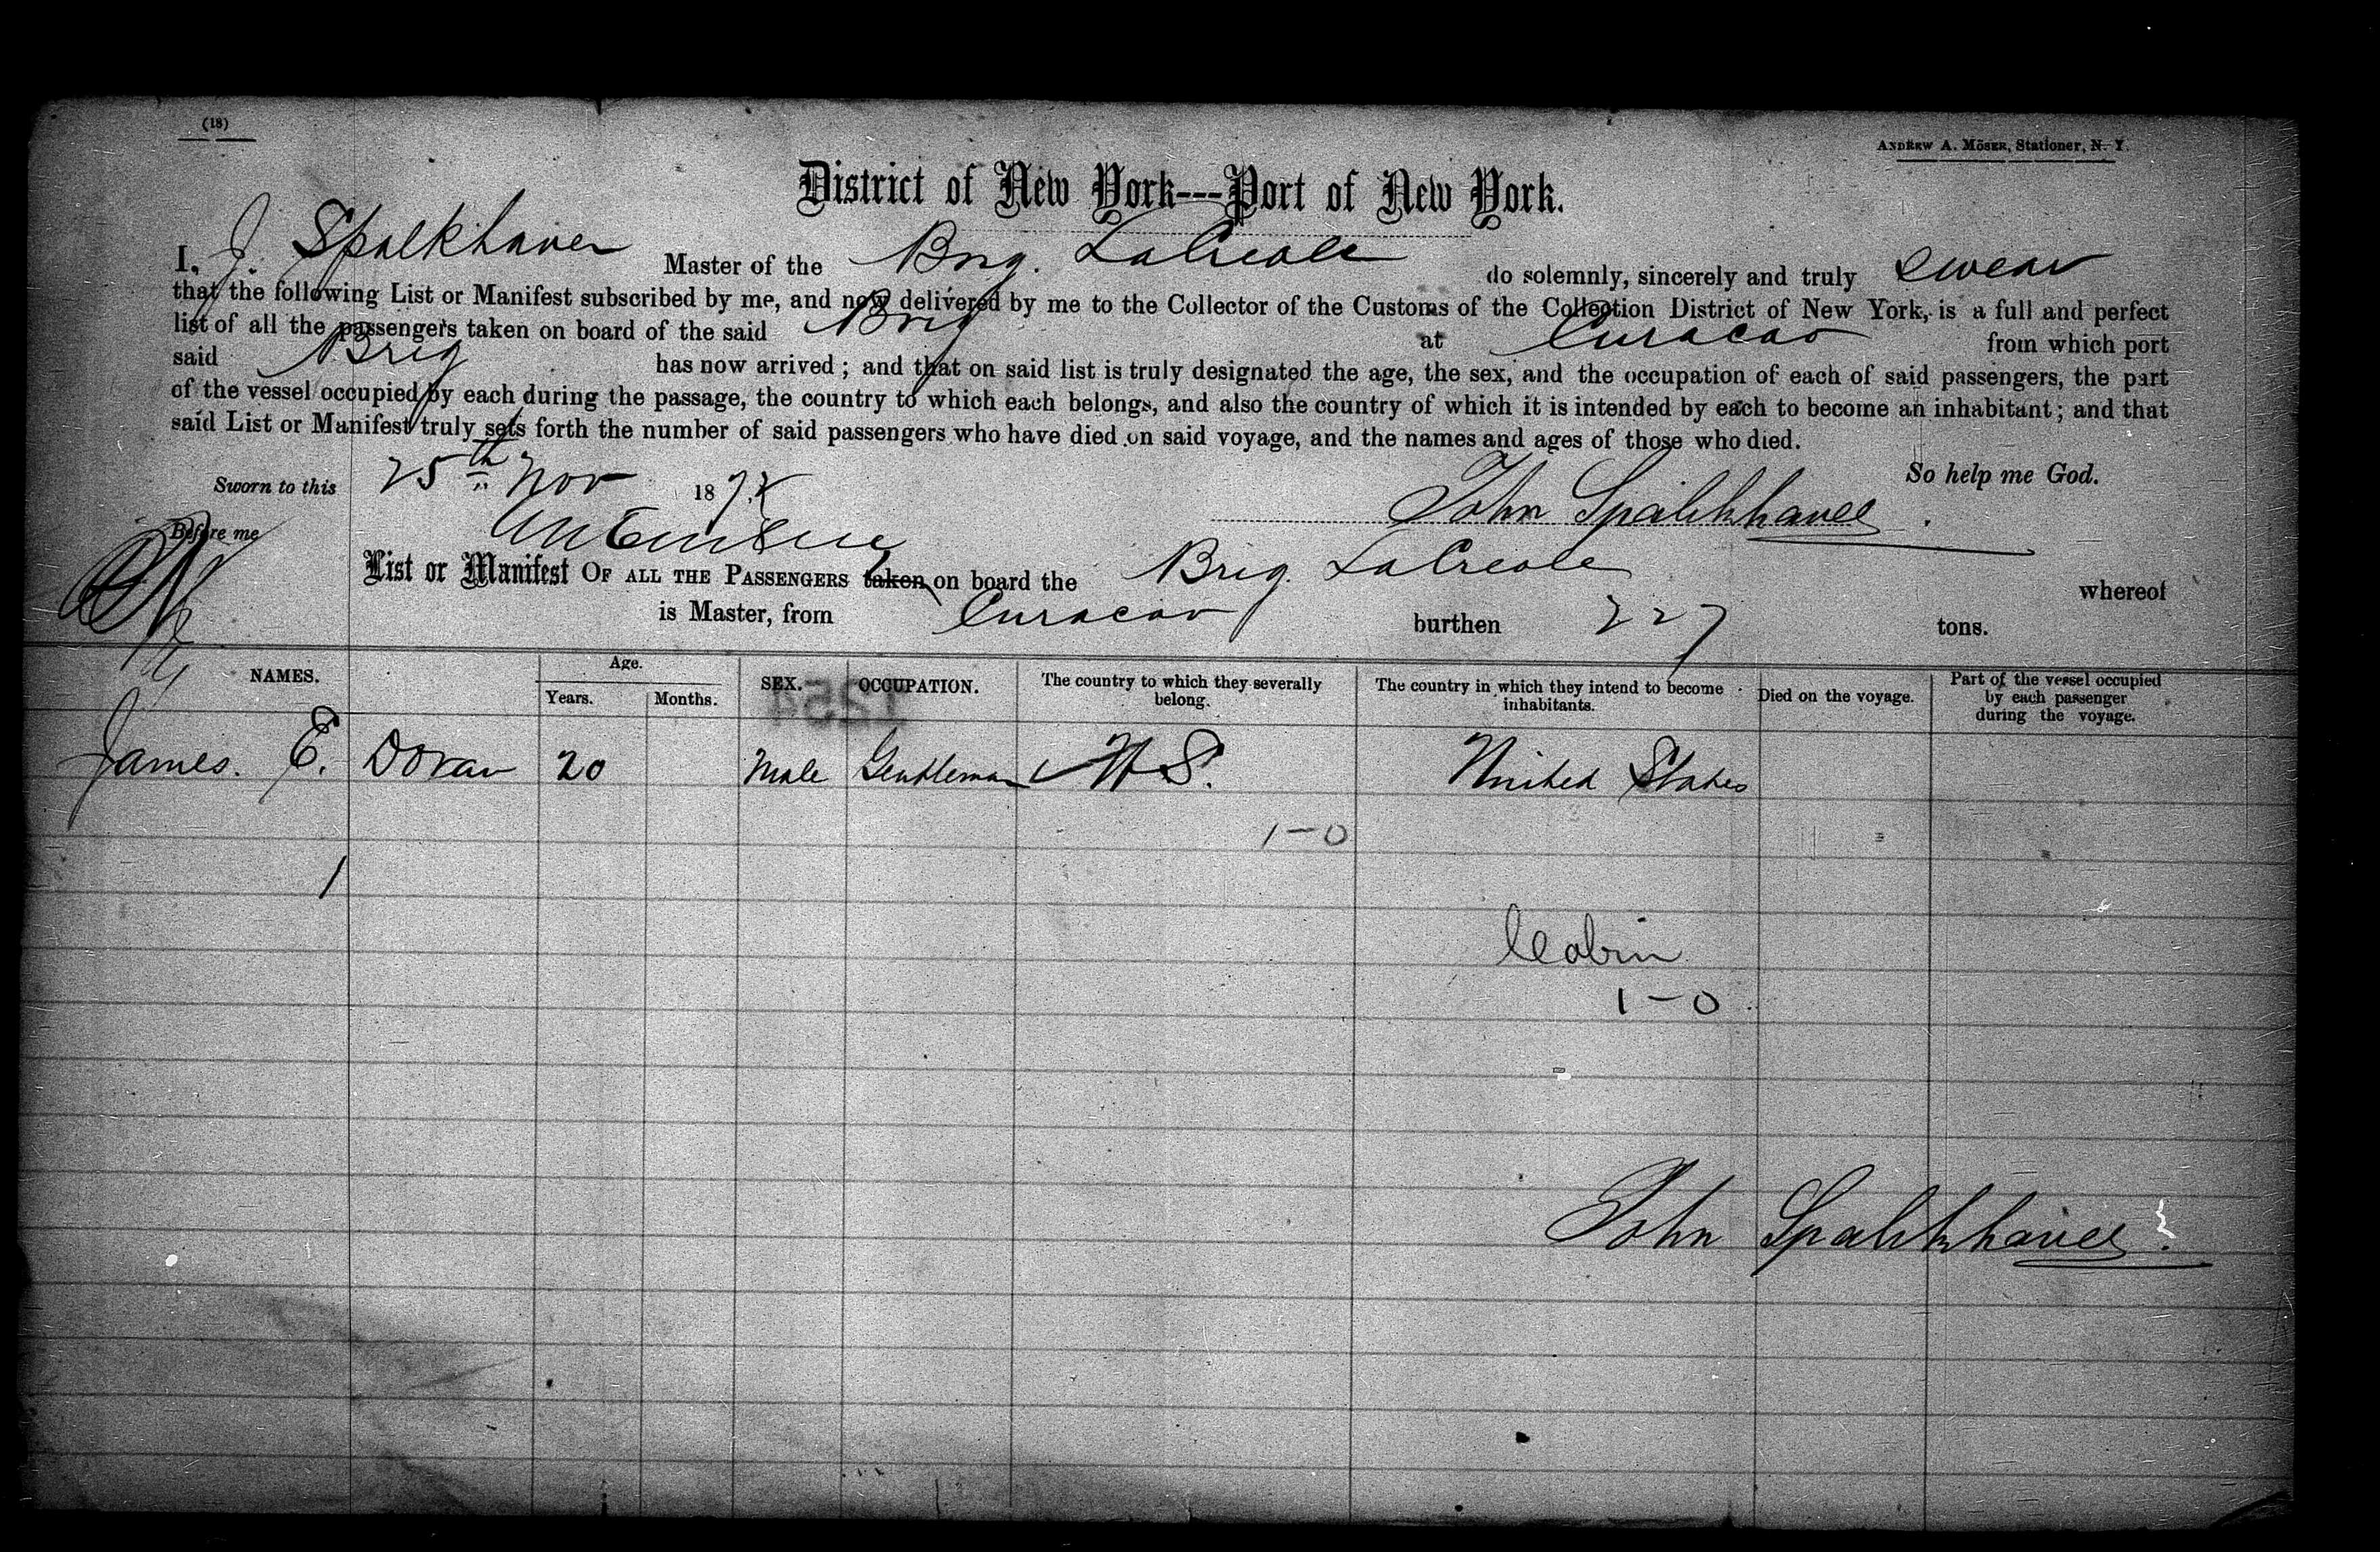 (18)
ANDREW A. MÖSER, Stationer, N. Y.
District of New York---Port of New York.
I, J. Spalkhaver Master of the Brig. LaCreole do solemnly, sincerely and truly swear
that the following List or Manifest subscribed by me, and now delivered by me to the Collector of the Customs of the Collection District of New York, is a full and perfect
list of all the passengers taken on board of the said Brig at Curacao from which port
said Brig has now arrived ; and that on said list is truly designated the age, the sex, and the occupation of each of said passengers, the part
of the vessel occupied by each during the passage, the country to which each belongs, and also the country of which it is intended by each to become an inhabitant ; and that
said List or Manifest truly sets forth the number of said passengers who have died on said voyage, and the names and ages of those who died.
So help me God.
Sworn to this 25th Nov 187
John Spalckhaver
Before me
List or Manifest OF ALL THE PASSENGERS taken on board the Brig. LaCreole whereof
is Master, from Curacao burthen 227 tons.
NAMES. Age. Years. Months. SEX. OCCUPATION. The country to which they severally belong. The country in which they intend to become inhabitants. Died on the voyage. Part of the vessel occupied by each passenger during the voyage.
1254
James. E. Doran 20 Male Gentleman U S. United States
1-0
1
Cabin
1-0
John Spalckhaver.